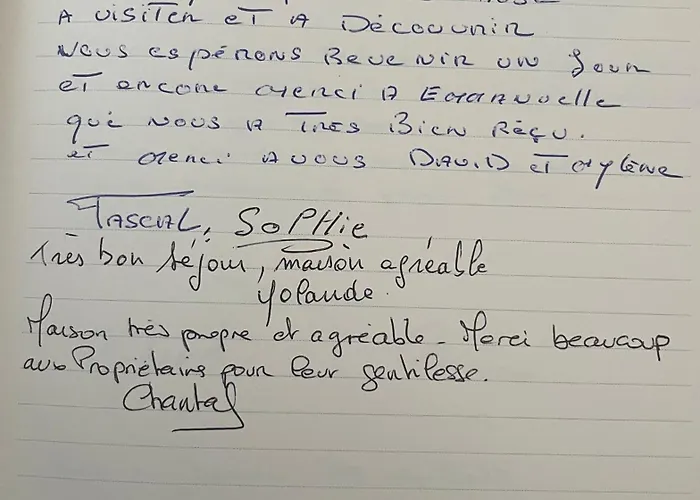 A visiter et A Découvrir
Nous espérons Revenir un Jour
et encore merci A Emanuelle
qui nous A Très Bien Réçu.
et merci A vous DAviD et mylène
PASCAL, SoPHie
Très bon séjour, maison agréable
Yolande.
Maison très propre et agréable - Merci beaucoup
aux Propriétaires pour leur gentilesse.
Chantal